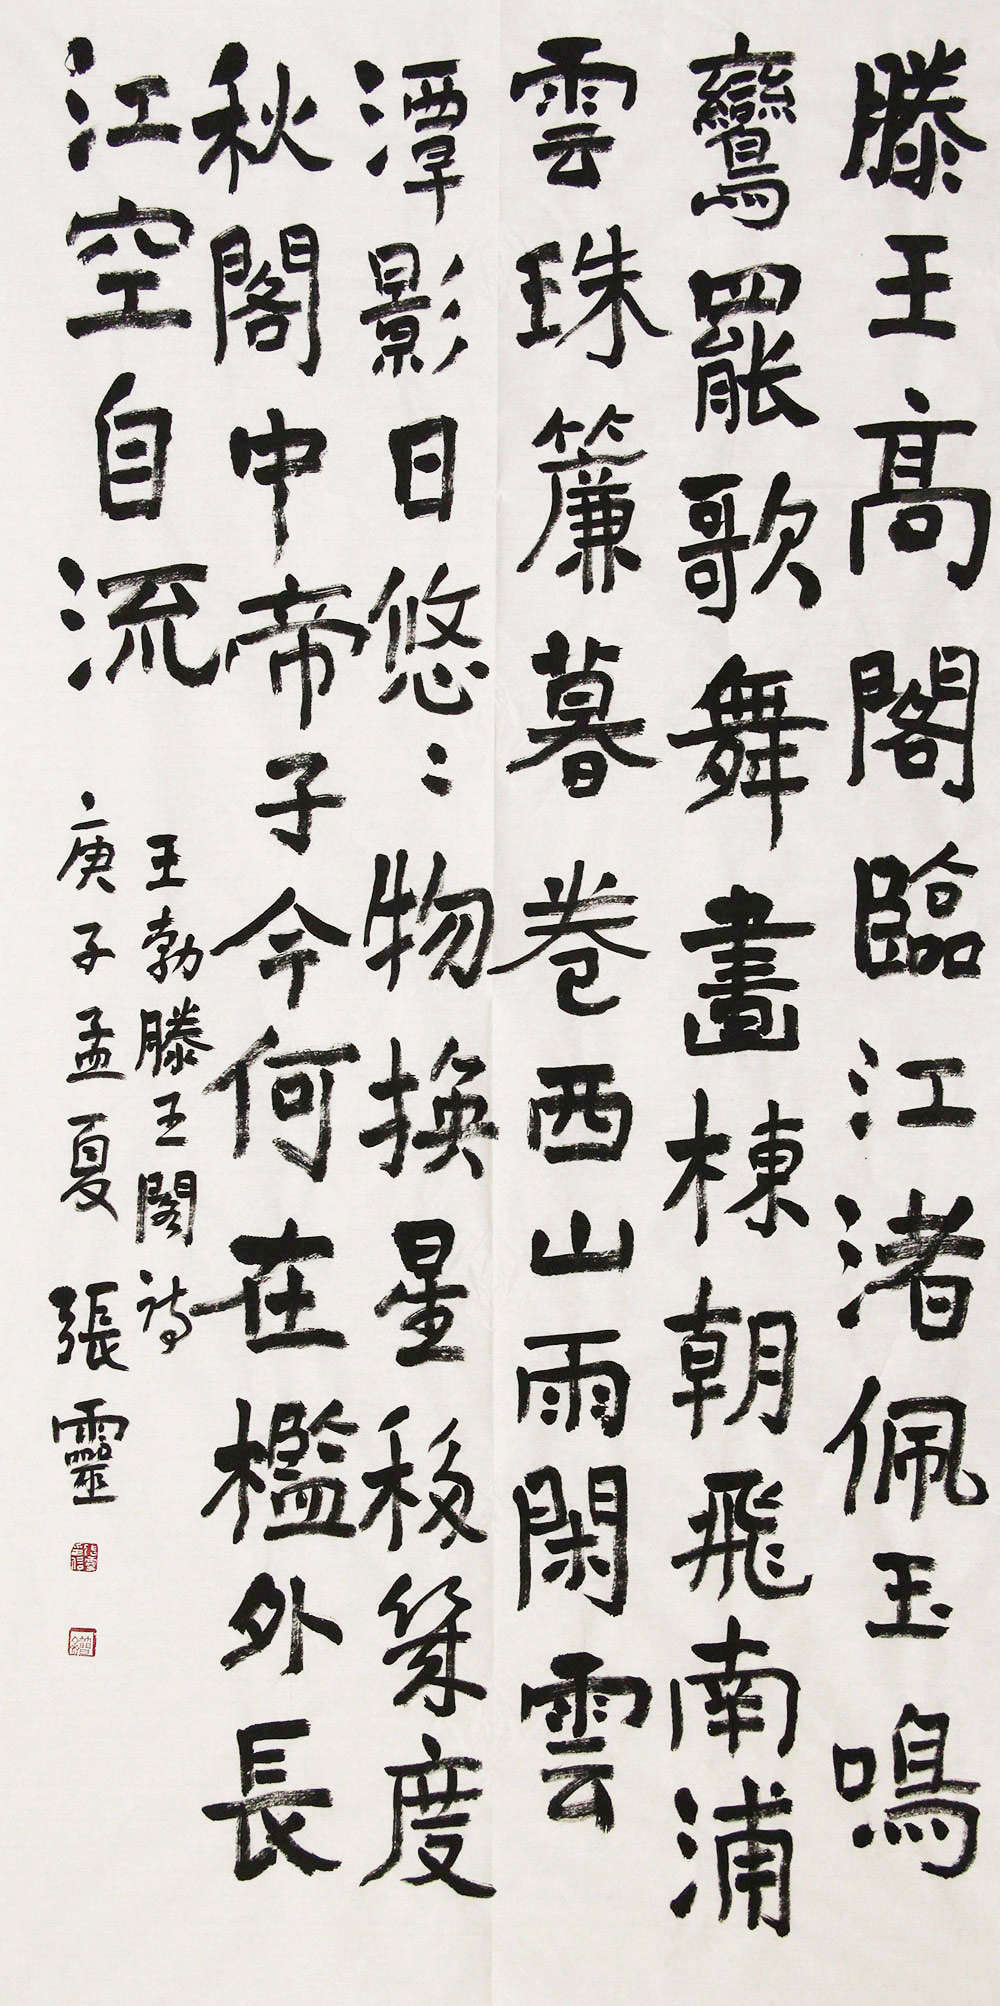 滕王高閣臨江渚佩玉鳴
鸞罷歌舞畫棟朝飛南浦
雲珠簾暮卷西山雨閑雲
潭影日悠〻物換星移幾度
秋閣中帝子今何在檻外長
江空自流
王勃滕王閣詩
庚子孟夏 張靈